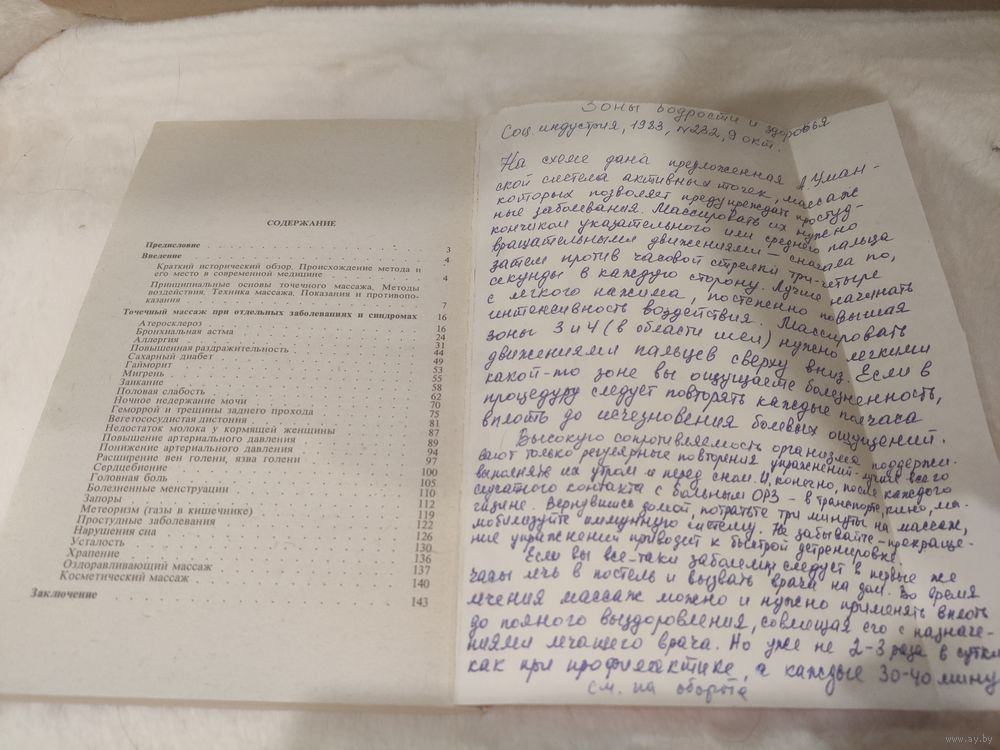 СОДЕРЖАНИЕ
Предисловие 3
Введение 4
Краткий исторический обзор. Происхождение метода и
его место в современной медицине 4
Принципиальные основы точечного массажа. Методы
воздействия. Техника массажа. Показания и противопо-
казания 7
Точечный массаж при отдельных заболеваниях и синдромах 16
Атеросклероз 16
Бронхиальная астма 24
Аллергия 31
Повышенная раздражительность 44
Сахарный диабет 49
Гайморит 53
Мигрень 55
Заикание 58
Половая слабость 62
Ночное недержание мочи 70
Геморрой и трещины заднего прохода 75
Вегетососудистая дистония 81
Недостаток молока у кормящей женщины 87
Повышение артериального давления 89
Понижение артериального давления 94
Расширение вен голени, язва голени 97
Сердцебиение 100
Головная боль 105
Болезненные менструации 110
Запоры 112
Метеоризм (газы в кишечнике) 119
Простудные заболевания 122
Нарушения сна 126
Усталость 130
Храпение 136
Оздоравливающий массаж 137
Косметический массаж 140
Заключение 143
Зоны бодрости и здоровья
Соц. индустрия, 1983, №232, 9 окт.
На схеме дана предложенная А. Уман-
ской система активных точек, массаж
которых позволяет предупреждать простуд-
ные заболевания. Массировать их нужно
кончиком указательного или среднего пальца
вращательными движениями – сначала по,
затем против часовой стрелки три-четыре
секунды в каждую сторону. Лучше начинать
с легкого нажима, постепенно повышая
интенсивность воздействия. Массировать
зоны 3 и 4 (в области шеи) нужно легкими
движениями пальцев сверху вниз. Если в
какой-то зоне вы ощущаете болезненность,
процедуру следует повторять каждые полчаса
вплоть до исчезновения болевых ощущений.
Высокую сопротивляемость организма поддержи-
вают только регулярные повторения упражнений – лучше всего
выполняйте их утром и перед сном. И, конечно, после каждого
случайного контакта с больным ОРЗ – в транспорте, кино, ма-
газине. Вернувшись домой, потратьте три минуты на массаж,
мобилизуйте иммунную систему. Не забывайте – прекраще-
ние упражнений приводит к быстрой детренировке.
Если вы все-таки заболели, следует в первые же
часы лечь в постель и вызвать врача на дом. Во время
лечения массаж можно и нужно применять вплоть
до полного выздоровления, совмещая его с назначе-
ниями лечащего врача. Но уже не 2-3 раза в сутки
как при профилактике, а каждые 30-40 мину
см. на обороте
www.ay.by